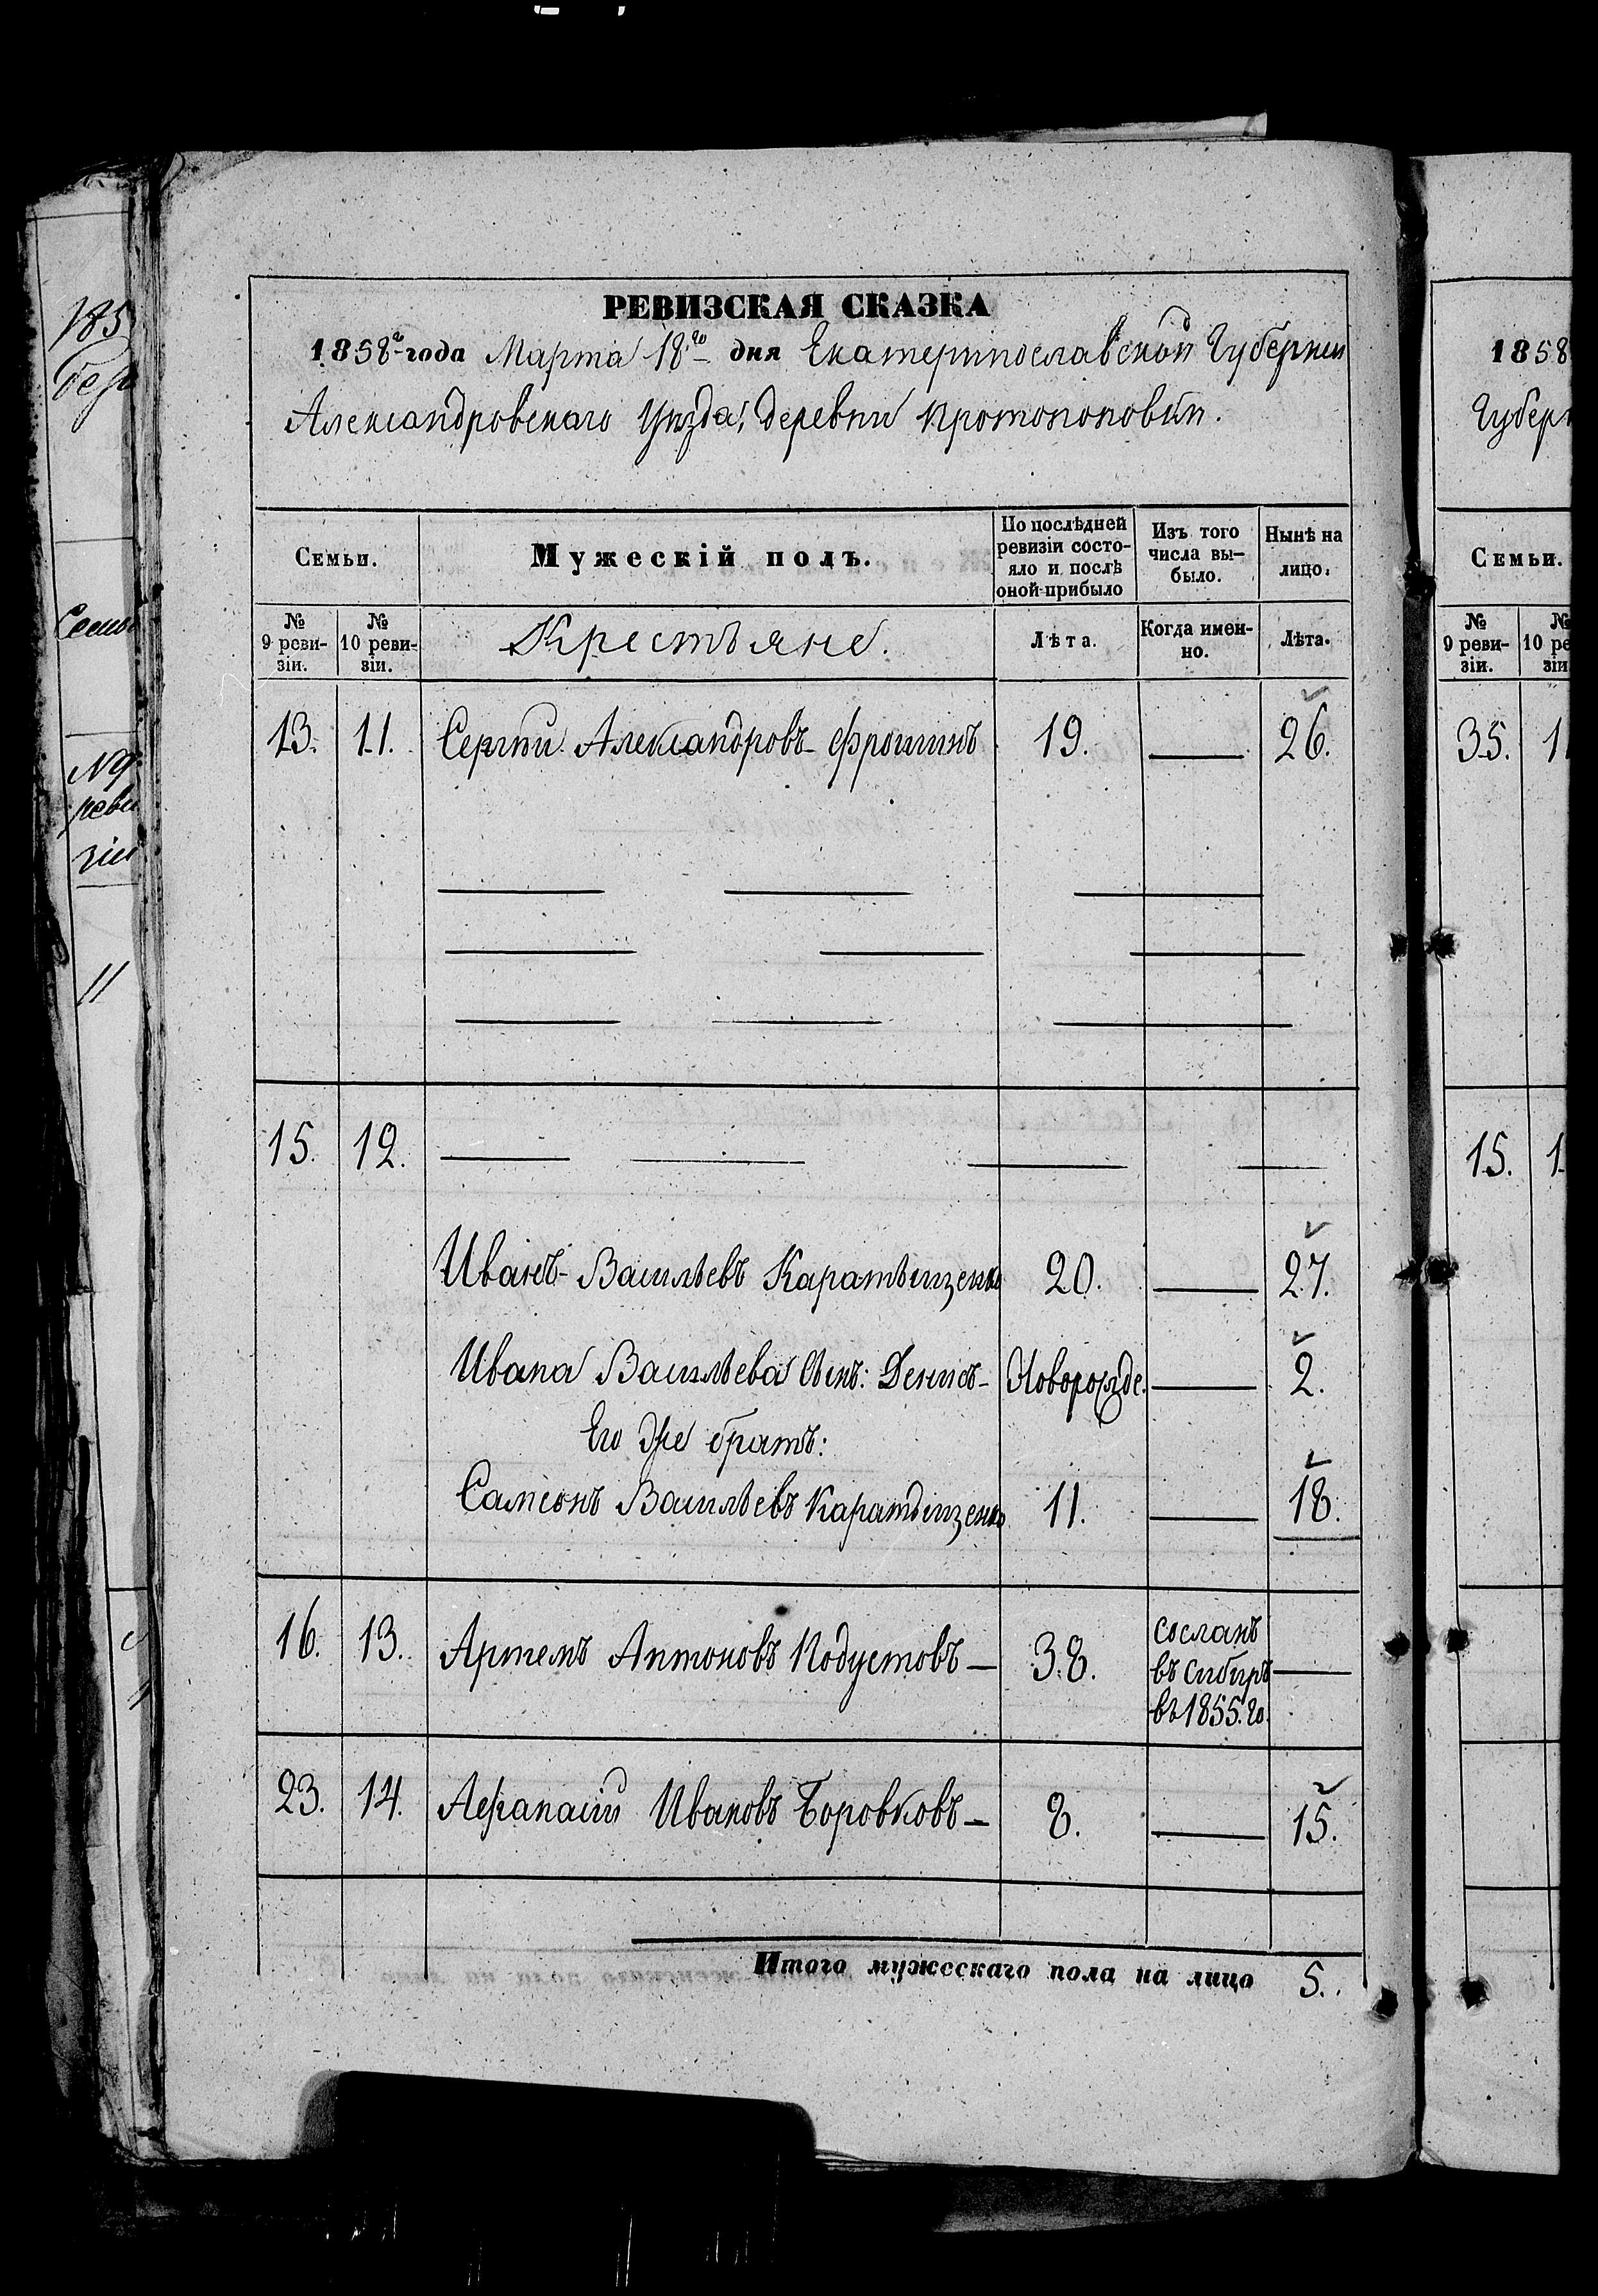 РЕВИЗСКАЯ СКАЗКА
1858го года Марта 18го дня Екатеринославской Губернии
Александровскаго Уѣзда, деревни Протопоповки.
Семьи.
Мужескій полъ.
По послѣдней ревизіи состояло и послѣ оной прибыло
Изъ того числа выбыло.
Нынѣ на лицо.
№ 9 ревизіи.
№ 10 ревизіи.
Крестьяне.
Лѣта.
Когда именно.
Лѣта.
13. 11. Сергѣй Александровъ Фрошинъ 19. — 26.
15. 12.
Иванъ Васильевъ 20. — 27.
Ивана Васильева Сынъ: Денисъ Новорожде. — 2.
Его же братъ:
Самсонъ Васильевъ 11. — 18.
16. 13. Артемъ Антоновъ Подустовъ — 38. сосланъ
въ Сибирь —
въ 1855. го.
23. 14. Афанасій Ивановъ Боровковъ — 8. — 15.
Итого мужескаго пола на лицо 5.
185
Семь
№ 9
реви
зіи
11
1858
Губерн
Семьи.
№ 9 ревизіи.
№ 10 ре
зіи
35. 1
15. 1